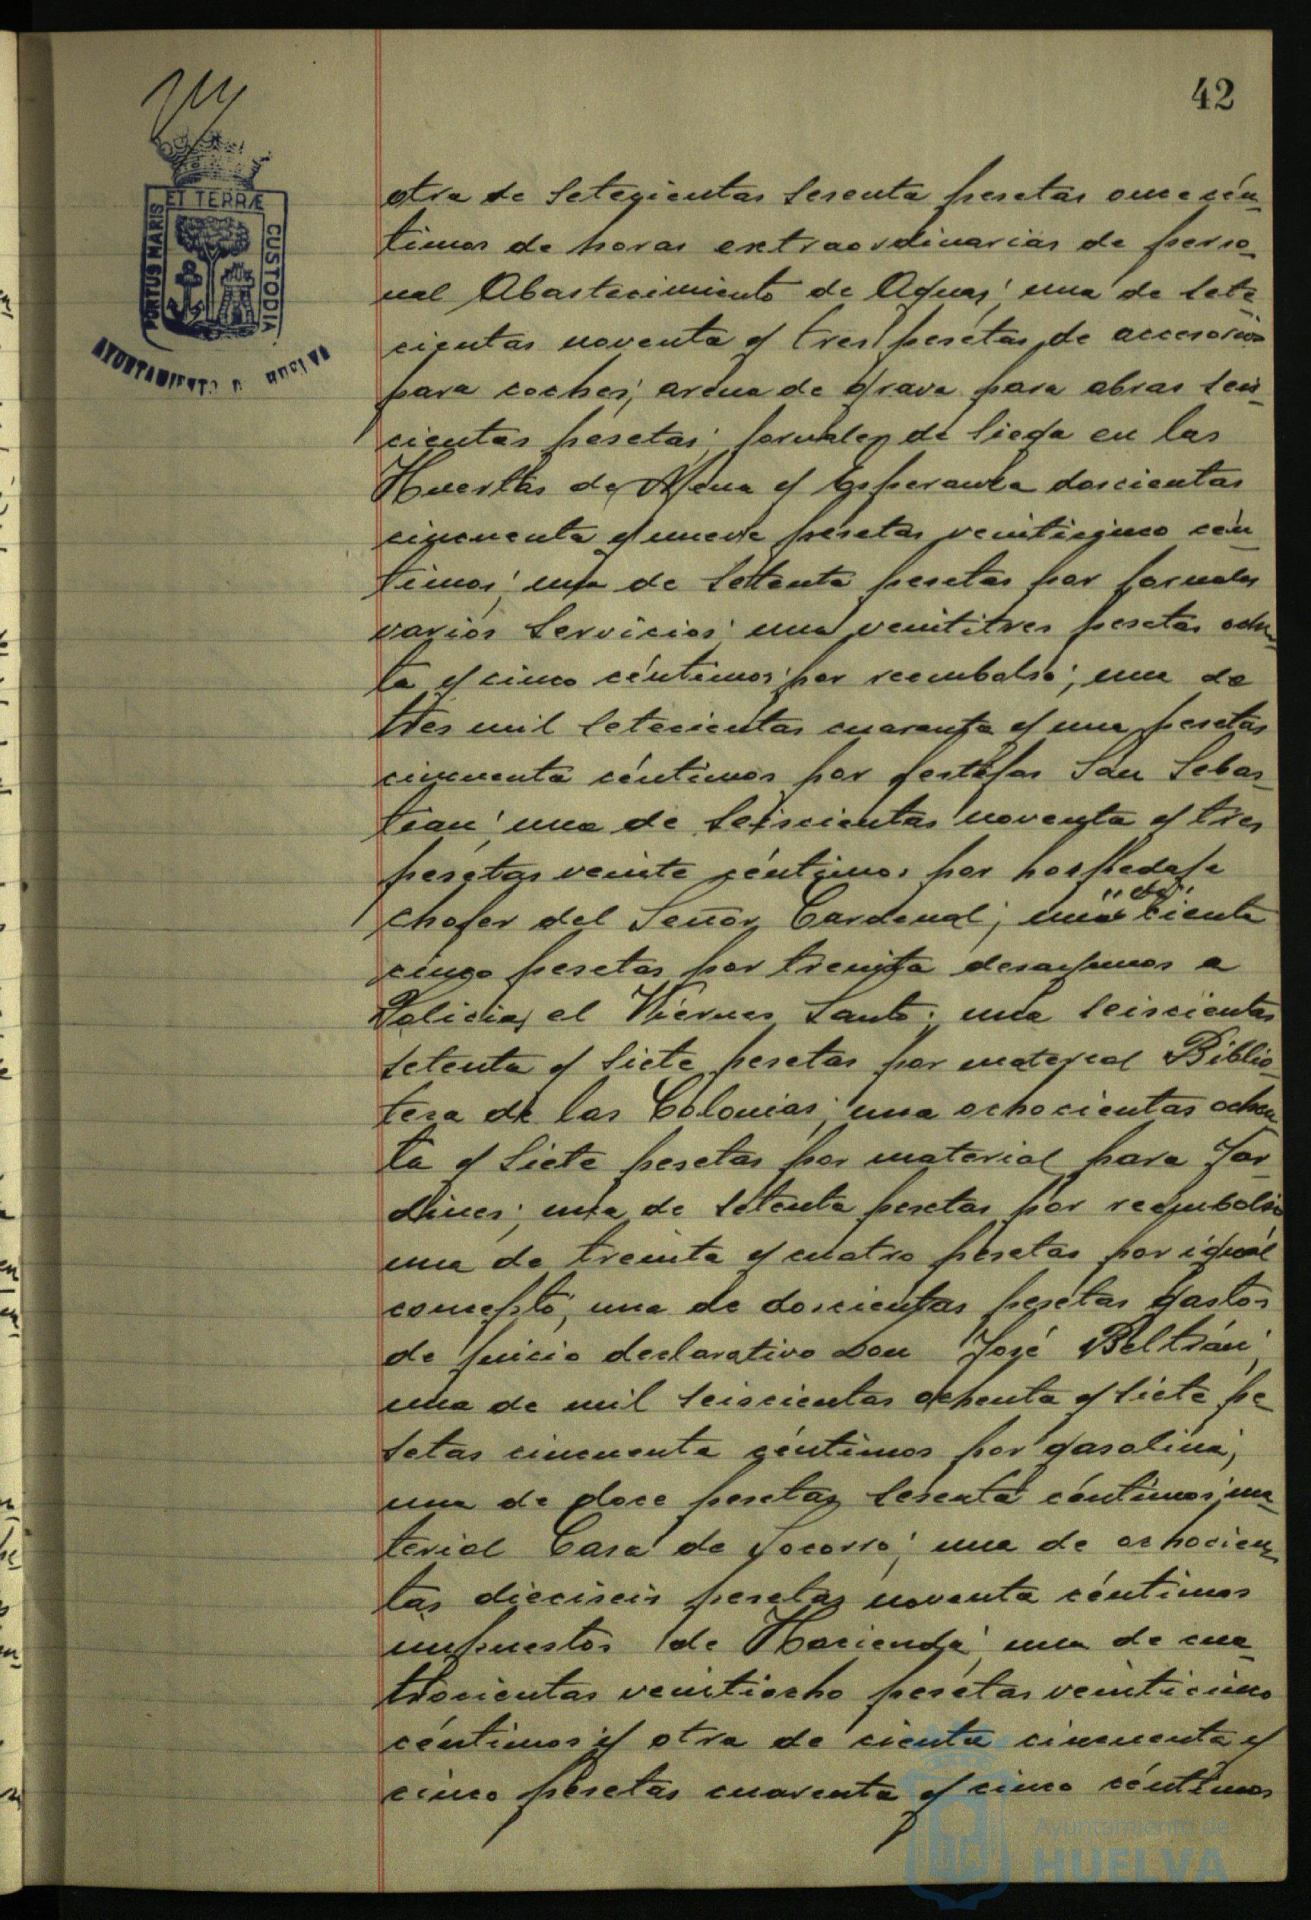 42
PORTUS MARIS
ET TERRÆ
CUSTODIA
AYUNTAMIENTO DE HUELVA
otra de setecientas sesenta pesetas once cén-
timos de horas extraordinarias de perso-
nal Abastecimiento de Aguas; una de sete-
cientas noventa y tres pesetas de accesorios
para coches; arena de grava para obras seis-
cientas pesetas; jornales de siega en las
Huertas de Mena y Esperanza doscientas
cincuenta y nueve pesetas veinticinco cén-
timos; una de setenta pesetas por jornales
varios servicios; una veintitres pesetas ochen-
ta y cinco céntimos por reembolso; una de
tres mil setecientas cuarenta y una pesetas
cincuenta céntimos por festejos San Sebas-
tian; una de seiscientas noventa y tres
pesetas veinte céntimos por hospedaje
chofer del Señor Cardenal; una "de" ciento
cinco pesetas por treinta desayunos a
Policia, el Viernes Santo; una seiscientas
setenta y siete pesetas por material Biblio-
teca de las Colonias; una ochocientas ochen-
ta y siete pesetas por material para Jar-
dines; una de setenta pesetas por reembolso
una de treinta y cuatro pesetas por igual
concepto; una de doscientas pesetas gastos
de juicio declarativo Don José Beltrán;
una de mil seiscientas ochenta y siete pe-
setas cincuenta céntimos por gasolina;
una de doce pesetas sesenta céntimos ma-
terial Casa de Socorro; una de ochocien-
tas dieciseis pesetas noventa céntimos
impuestos de Hacienda; una de cua-
trocientas veintiocho pesetas veinticinco
céntimos y otra de ciento cincuenta y
cinco pesetas cuarenta y cinco céntimos
Ayuntamiento de
HUELVA